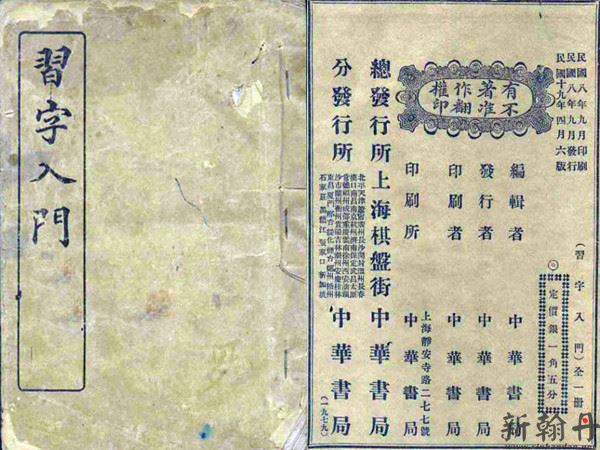 習字入門
民國八年九月印刷
民國八年九月發行
民國十九年四月六版
有
著作權
不准翻印
(習字入門)全一冊
定價銀一角五分
編輯者 中華書局
發行者 中華書局
印刷者 中華書局
印刷所 上海靜安寺路二七七號 中華書局
總發行所 上海棋盤街 中華書局
分發行所 中華書局
(一九七九)
新翰丹